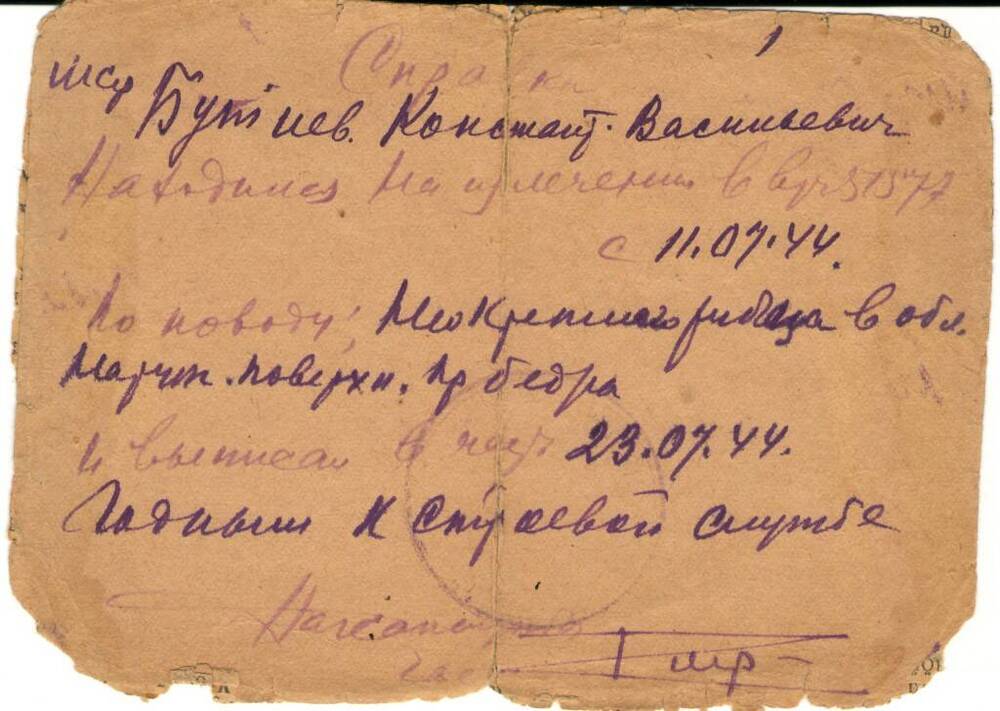 Справка
Констант. Васильевич
Находился на излечении в в/ч 51577
с 11.07.44.
По поводу: неокрепшего рубца в обл.
наружн. поверхн. пр бедра
и выписан в часть 23.07.44.
Годным к строевой службе
Начсан